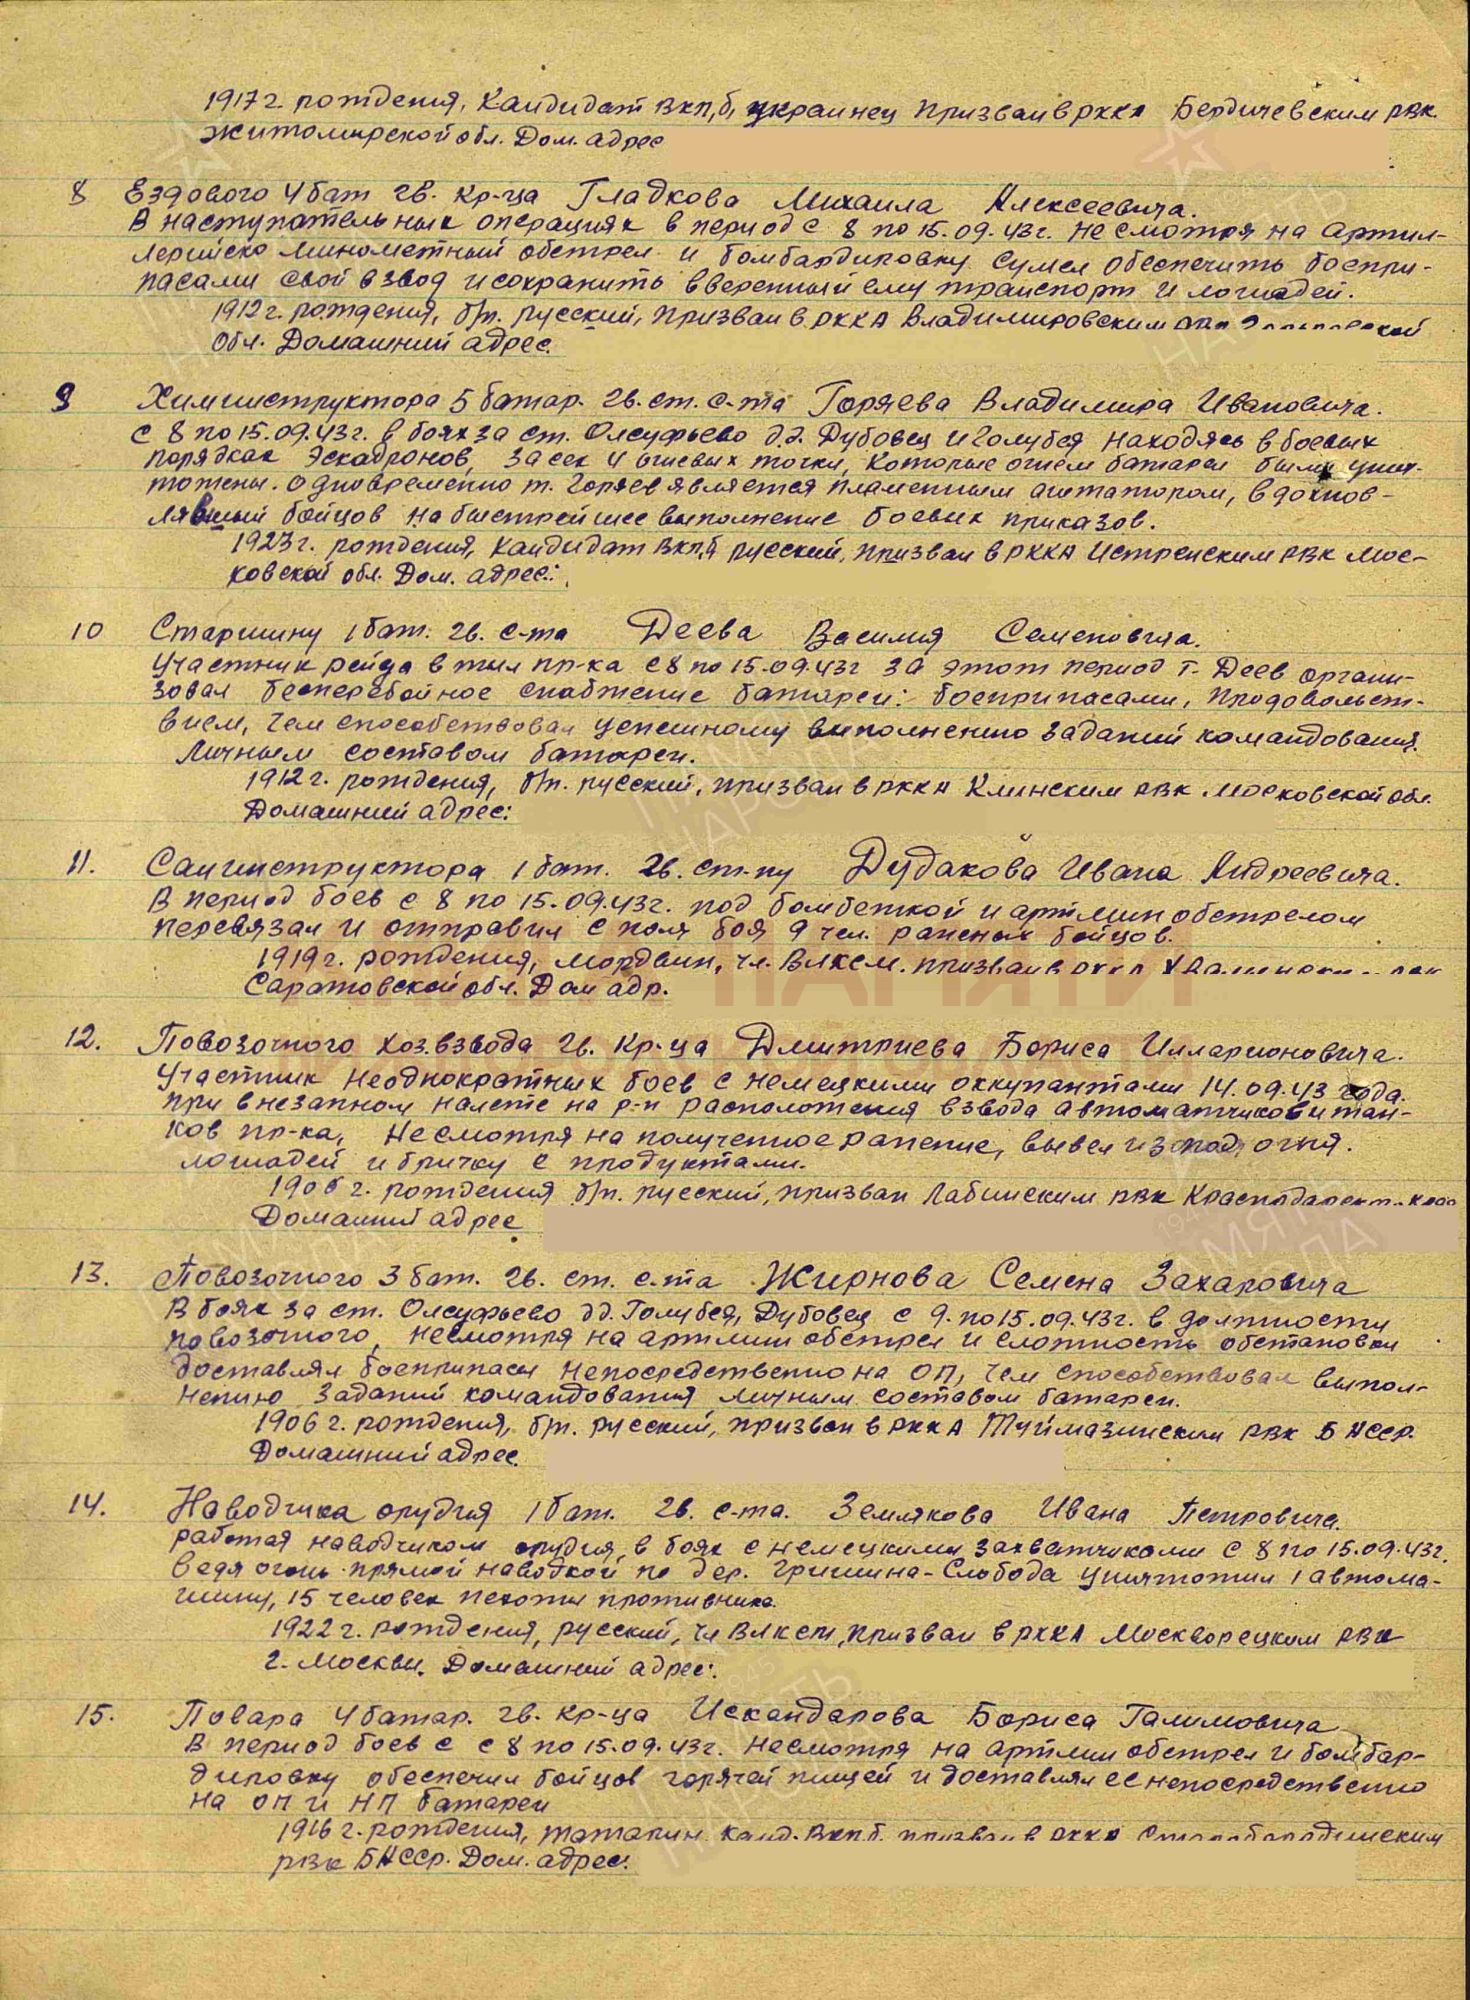 1917 г. рождения, Кандидат ВКП,б, украинец призван в РККА Бердичевским РВК.
Житомирской обл. Дом. адрес
8 Ездового 4 бат гв. кр-ца Гладкова Михаила Алексеевича.
В наступательных операциях в период с 8 по 15.09.43г. не смотря на артил-
лерийско минометный обстрел и бомбардировку сумел обеспечить боепри-
пасами свой взвод и сохранить вверенный ему транспорт и лошадей.
1912 г. рождения, б/п. русский, призван в РККА Владимировским РВК
обл. Домашний адрес.
9 Химинструктора 5 батар. гв. ст. с-та Горяева Владимира Ивановича.
С 8 по 15.09.43г. в боях за ст. Олсуфьево д.д. Дубовец и Голубея находясь в боевых
порядках эскадронов, засек 4 огневых точки, которые огнем батареи были унич-
тожены. Одновременно т. Горяев является пламенным агитатором, вдохнов-
лявший бойцов на быстрейшее выполнение боевых приказов.
1923 г. рождения, кандидат ВКП,б русский, призван в РККА Истренским РВК Мос-
ковской обл. Дом. адрес:
10 Старшину 1 бат. гв. с-та Деева Василия Семеновича.
Участник рейда в тыл пр-ка с 8 по 15.09.43г за этот период т. Деев органи-
зовал бесперебойное снабжение батареи: боеприпасами, продовольст-
вием, чем способствовал успешному выполнению заданий командования
личным составом батареи.
1912 г. рождения, б/п. русский, призван в РККА Клинским РВК Московской обл.
Домашний адрес:
11. Санинструктора 1 бат. гв. ст-ну Дудакова Ивана Андреевича.
В период боев с 8 по 15.09.43г. под бомбежкой и артмин обстрелом
перевязал и отправил с поля боя 9 чел. раненых бойцов.
1919 г. рождения, мордвин, чл. ВЛКСМ. призван в РККА
Саратовской обл. Дом адр.
12. Повозочного хоз.взвода гв. кр-ца Дмитриева Бориса Илларионовича.
Участник неоднократных боев с немецкими оккупантами 14.09.43 года.
при внезапном налете на р-н расположения взвода автоматчиков и тан-
ков пр-ка, несмотря на полученное ранение, вывел из под огня.
лошадей и бричку с продуктами.
1906 г. рождения б/п. русский, призван Лабинским РВК Краснодарск. края
Домашний адрес
13. Повозочного 3 бат. гв. ст. с-та Жирнова Семена Захаровича
В боях за ст. Олсуфьево дд. Голубея, Дубовец с 9. по 15.09.43г. в должности
повозочного, несмотря на артмин обстрел и сложность обстановки
доставлял боеприпасы непосредственно на ОП, чем способствовал выпол-
нению заданий командования личным составом батареи.
1906 г. рождения, б/п. русский, призван в РККА Туймазинским РВК БАССР.
Домашний адрес.
14. Наводчика орудия 1 бат. гв. с-та. Землякова Ивана Петровича.
работая наводчиком орудия в боях с немецкими захватчиками с 8 по 15.09.43г.
ведя огонь прямой наводкой по дер. Гришина-Слобода уничтожил 1 автома-
шину, 15 человек пехоты противника.
1922 г. рождения, русский, чл ВЛКСМ, призван в РККА Москворецким РВК
г. Москвы. Домашний адрес:
15. Повара 4 батар. гв. кр-ца Искандарова Бориса Галимовича
В период боев с с 8 по 15.09.43г. несмотря на артмин обстрел и бомбар-
дировку обеспечил бойцов горячей пищей и доставлял ее непосредственно
на ОП и НП батареи
1916 г. рождения, татарин канд. ВКП.б. призван в РККА
РВК БАССР. Дом. адрес: